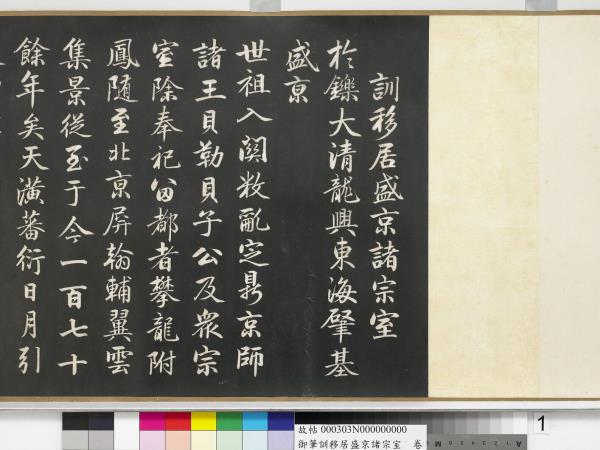 訓移居盛京諸宗室
於鑠大清龍興東海肇基
盛京
世祖入關敉亂定鼎京師
諸王貝勒貝子公及眾宗
室除奉祀留都者攀龍附
鳳隨至北京屏翰輔翼雲
集景從至于今一百七十
餘年矣天潢蕃衍日月引
故帖 000303N000000000
御筆訓移居盛京諸宗室 卷
1